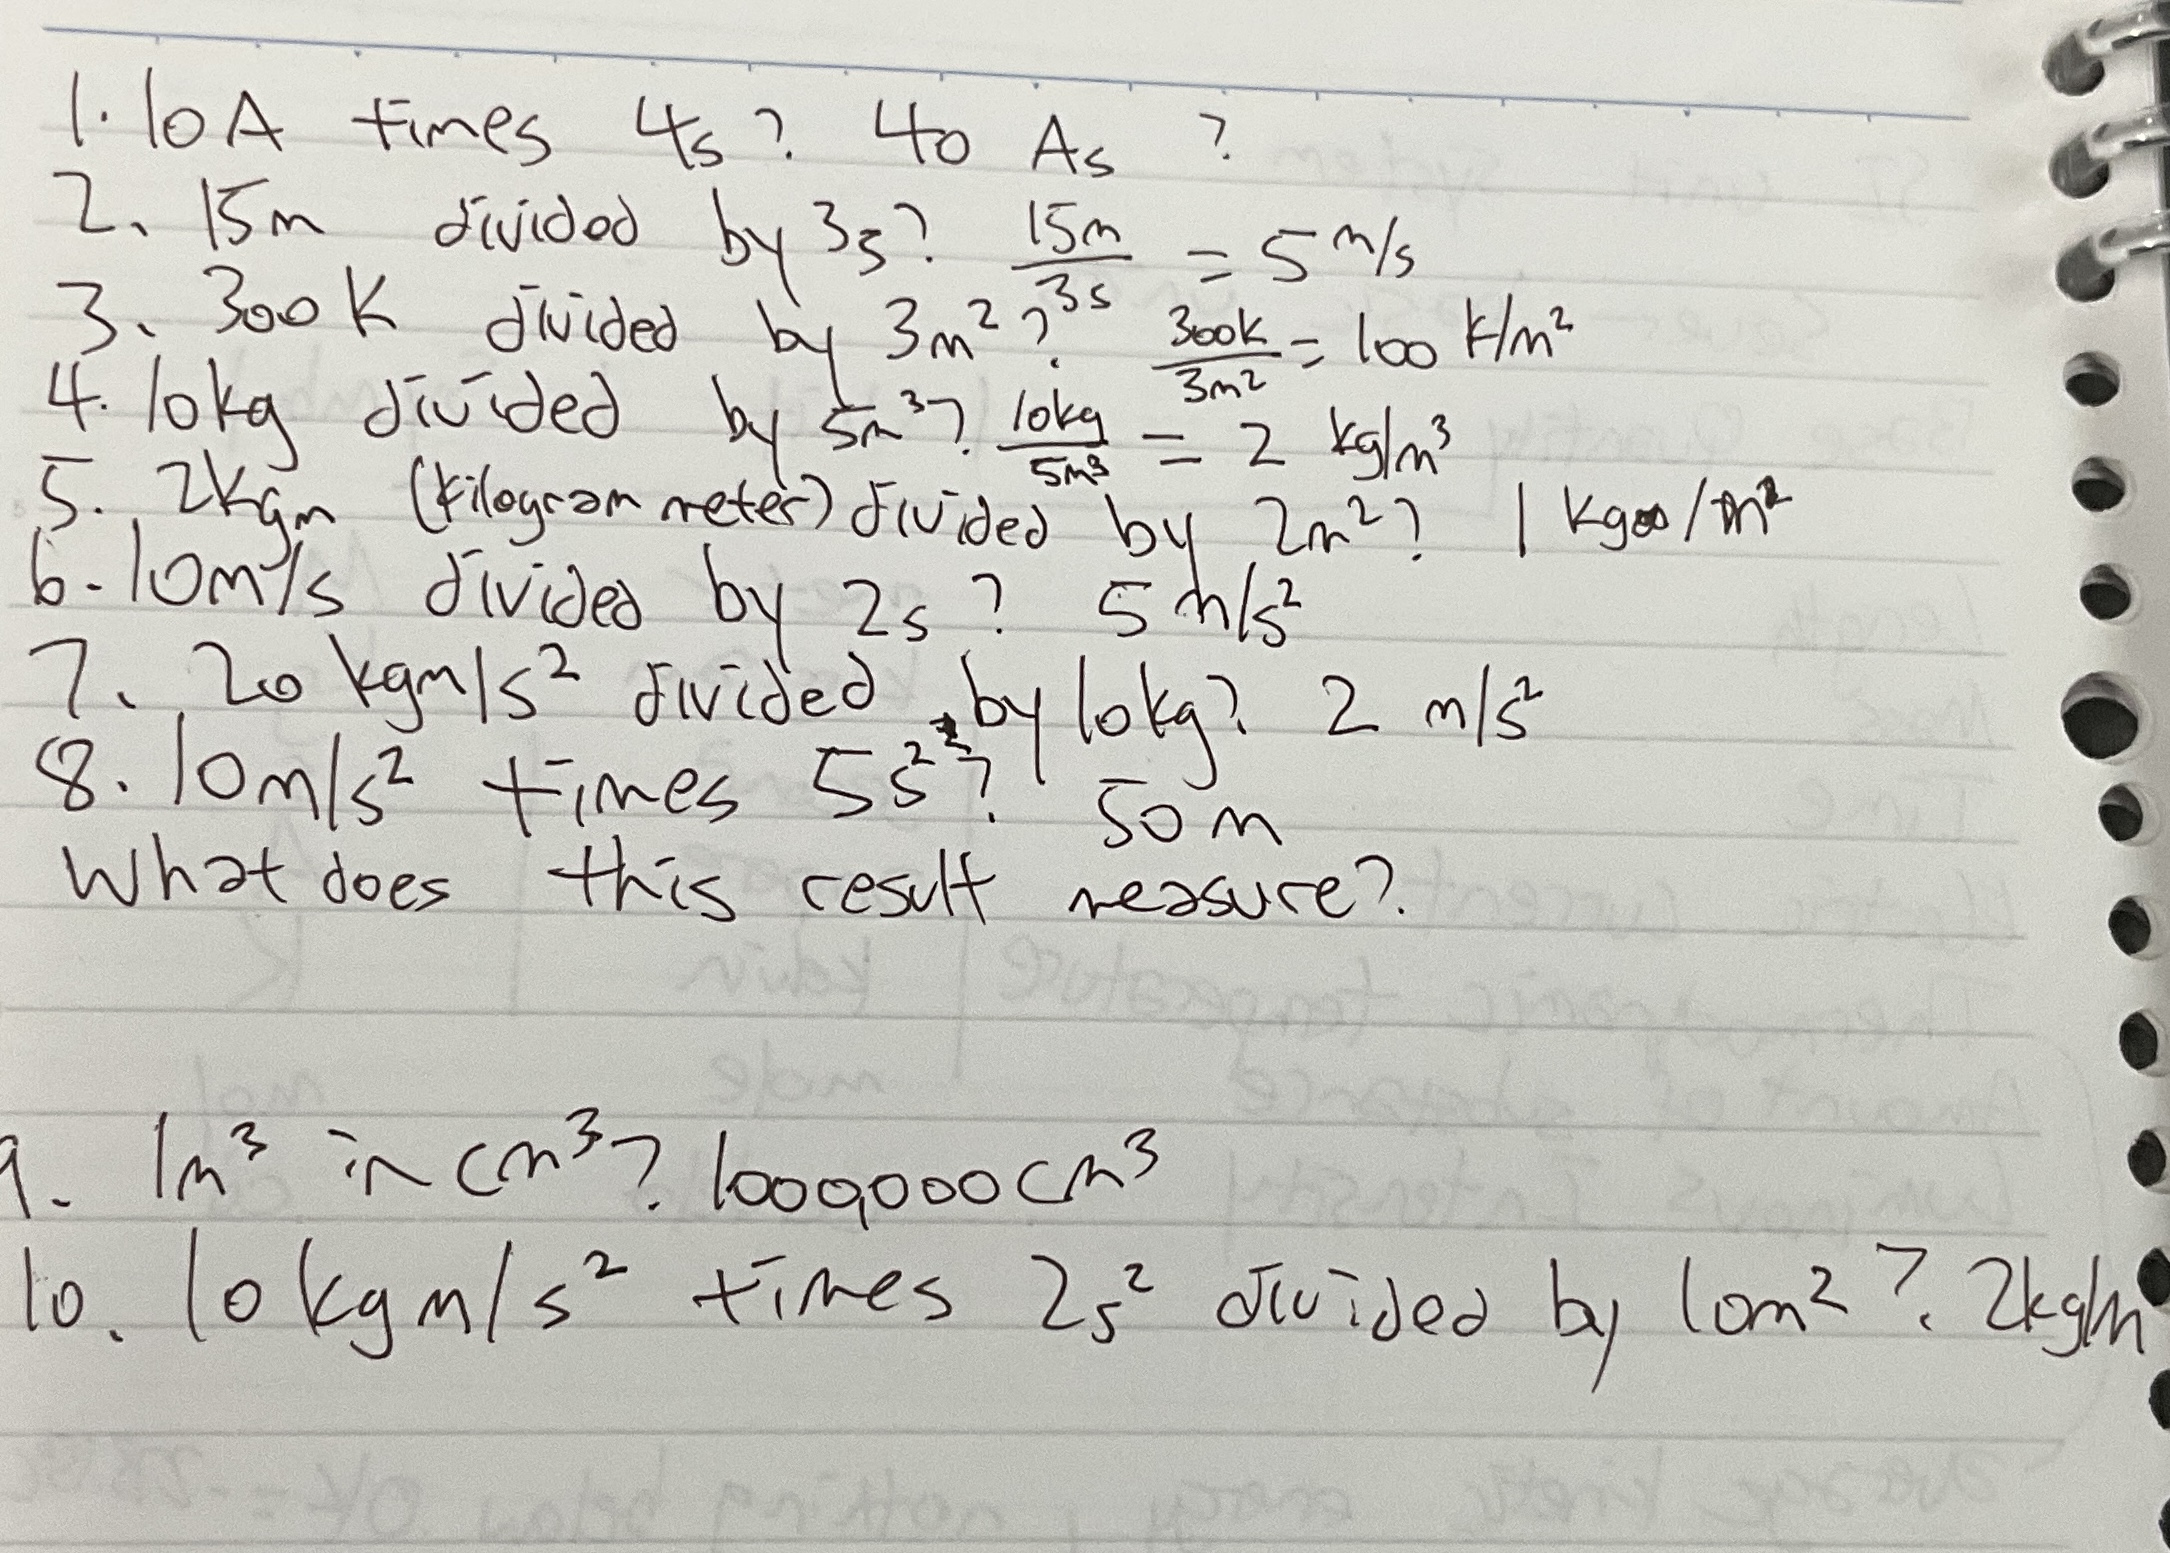 1. 10A times 4s? 40 As ?
2. 15m divided by 3s? 15m/3s = 5 m/s
3. 300K divided by 3m²? 300K/3m² = 100 K/m²
4. 10kg divided by 5m³? 10kg/5m³ = 2 kg/m³
5. 2kgm (kilogram meter) divided by 2m²? 1 kg/m
6. 10m/s divided by 2s? 5 m/s²
7. 20 kgm/s² divided by 10kg? 2 m/s²
8. 10m/s² times 5s²? 50 m
What does this result measure?
9. 1m³ in cm³? 1000,000 cm³
10. 10kgm/s² times 2s² divided by 10m²? 2kg/m